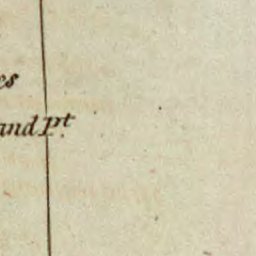 es
and Pt.